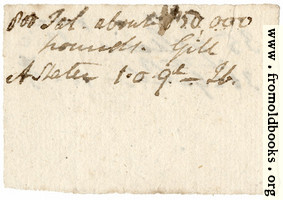 800 Tal. about 150,000
pounds. Gill
A Stater 1.0.9d — Ib.
www.fromoldbooks.org